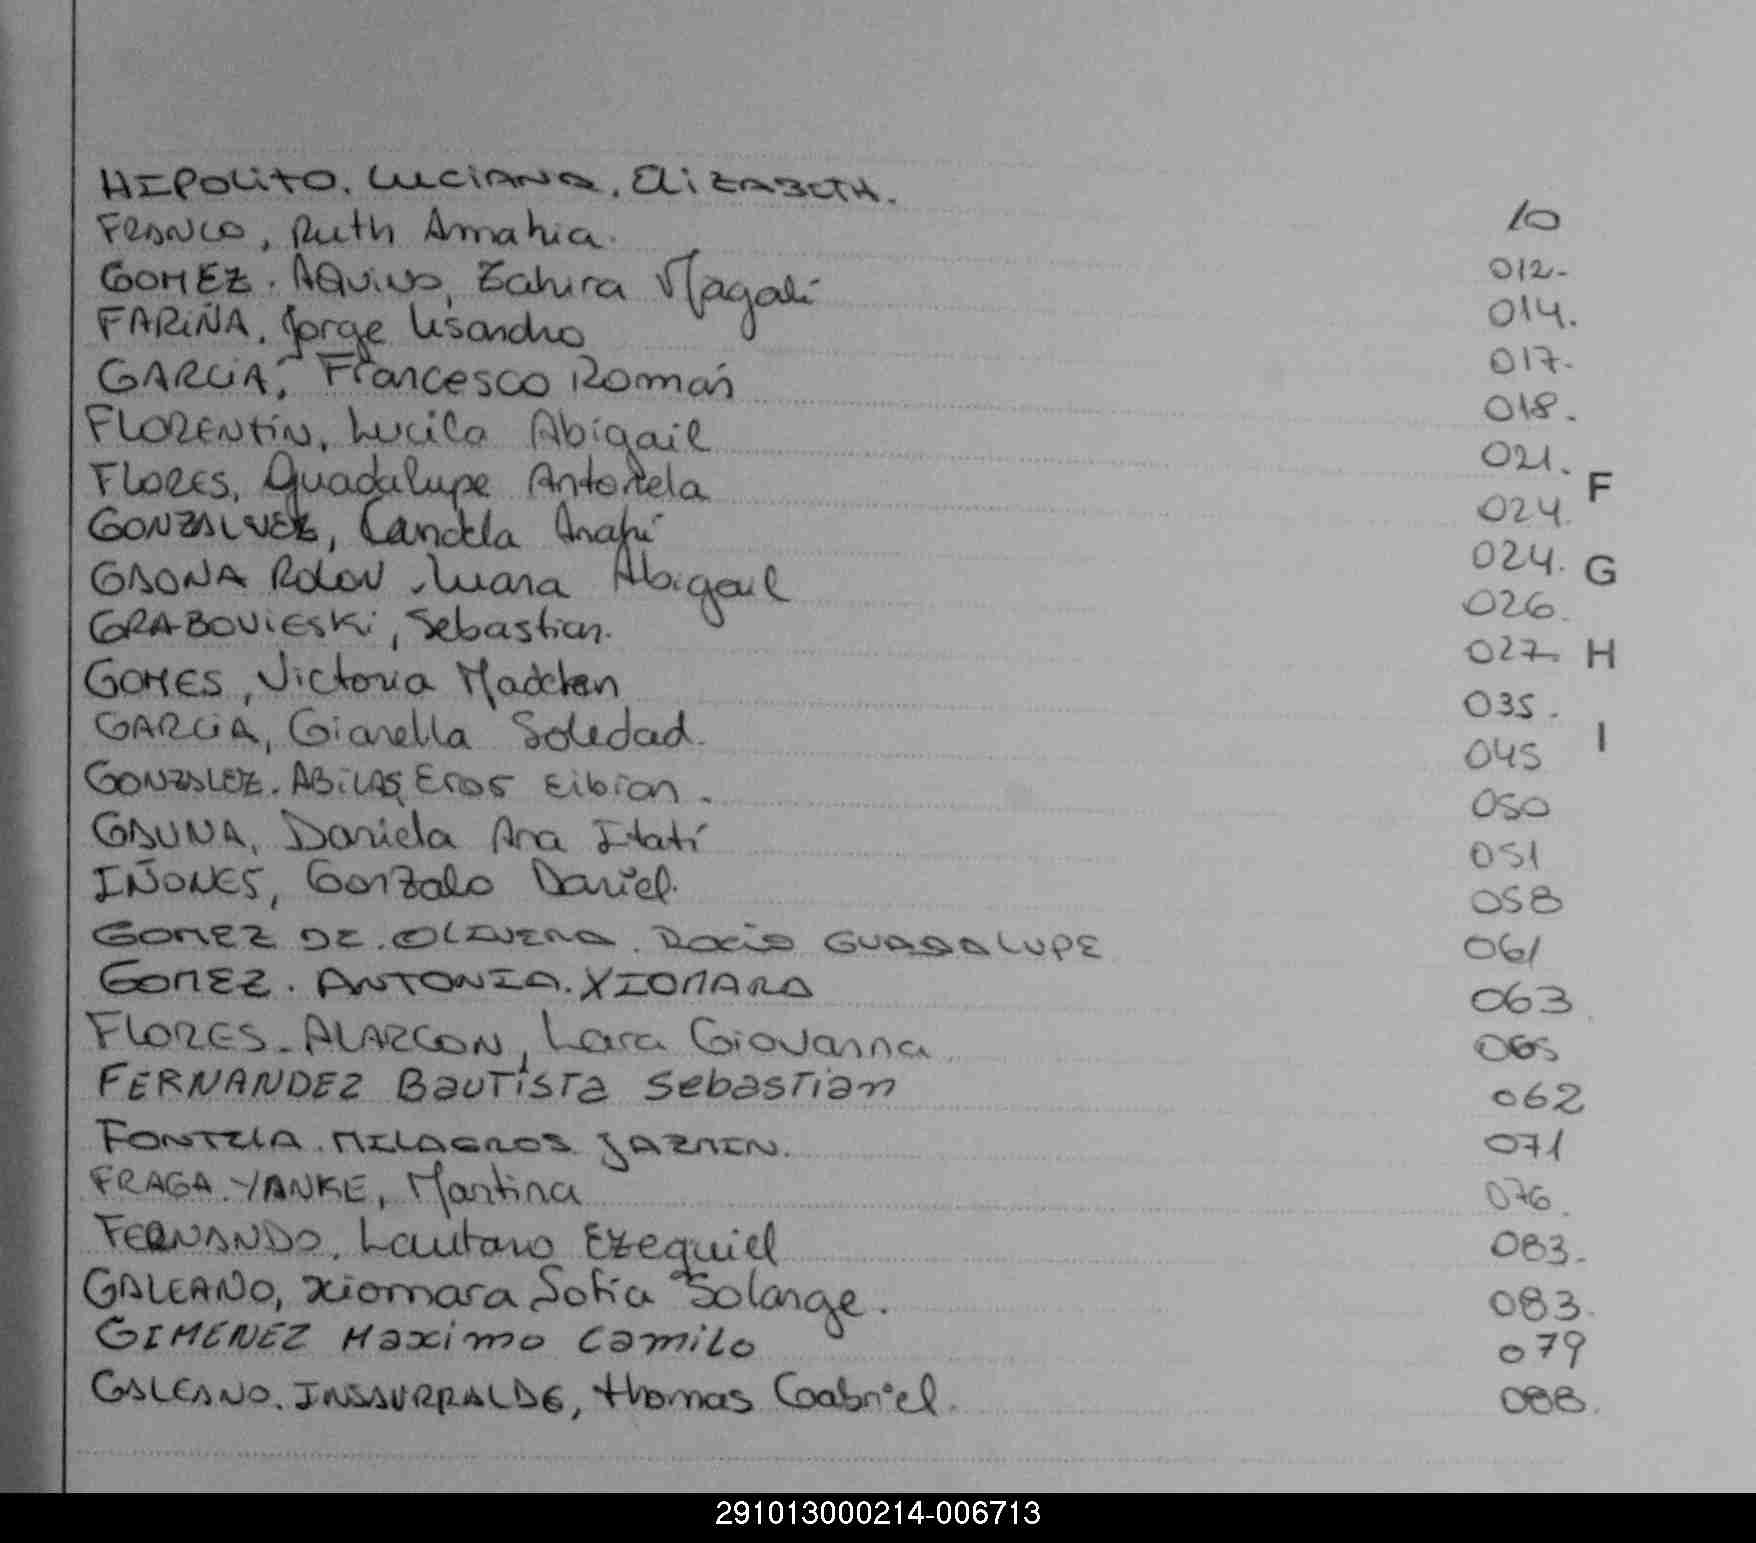 HIPOLITO. LUCIANA. ELIZABETH. 10
FRANCO, Ruth Amahia. 012.
GOMEZ. AQUINO, Zahira Magali 014.
FARIÑA, Jorge Lisandro 017.
GARCIA, Francesco Román 018.
FLORENTÍN, Lucila Abigail 021.
FLORES, Guadalupe Antonela 024.
GONZALVEZ, Candela Anahí 024.
GAONA ROLON, Luana Abigail 026.
GRABOVIESKI, Sebastian. 027.
GOMES, Victoria 035.
GARCIA, Gianella Soledad. 045
GONZALEZ. Eros 050
GAUNA, Daniela Ana Itatí 051
IÑONES, Gonzalo Daniel. 058
GOMEZ DE. OLIVERA. ROCIO GUADALUPE 061
GOMEZ. ANTONIA. XIOMARA 063
FLORES. ALARCON, Lara Giovanna 065
FERNANDEZ Bautista Sebastian 062
FONTELA. MILAGROS JAZMIN. 071
FRAGA. YANKE, Martina 076.
FERNANDO, Lautaro Ezequiel 083.
GALEANO, Xiomara Sofia Solange. 083.
GIMENEZ Maximo Camilo 079
GALEANO. INSAURRALDE, thomas Gabriel. 088.
F
G
H
I
291013000214-006713